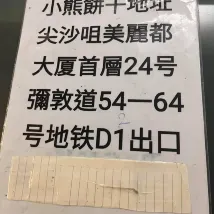 小熊餅干地址
尖沙咀美麗都
大厦首層24号
彌敦道54一64
号地铁D1出口